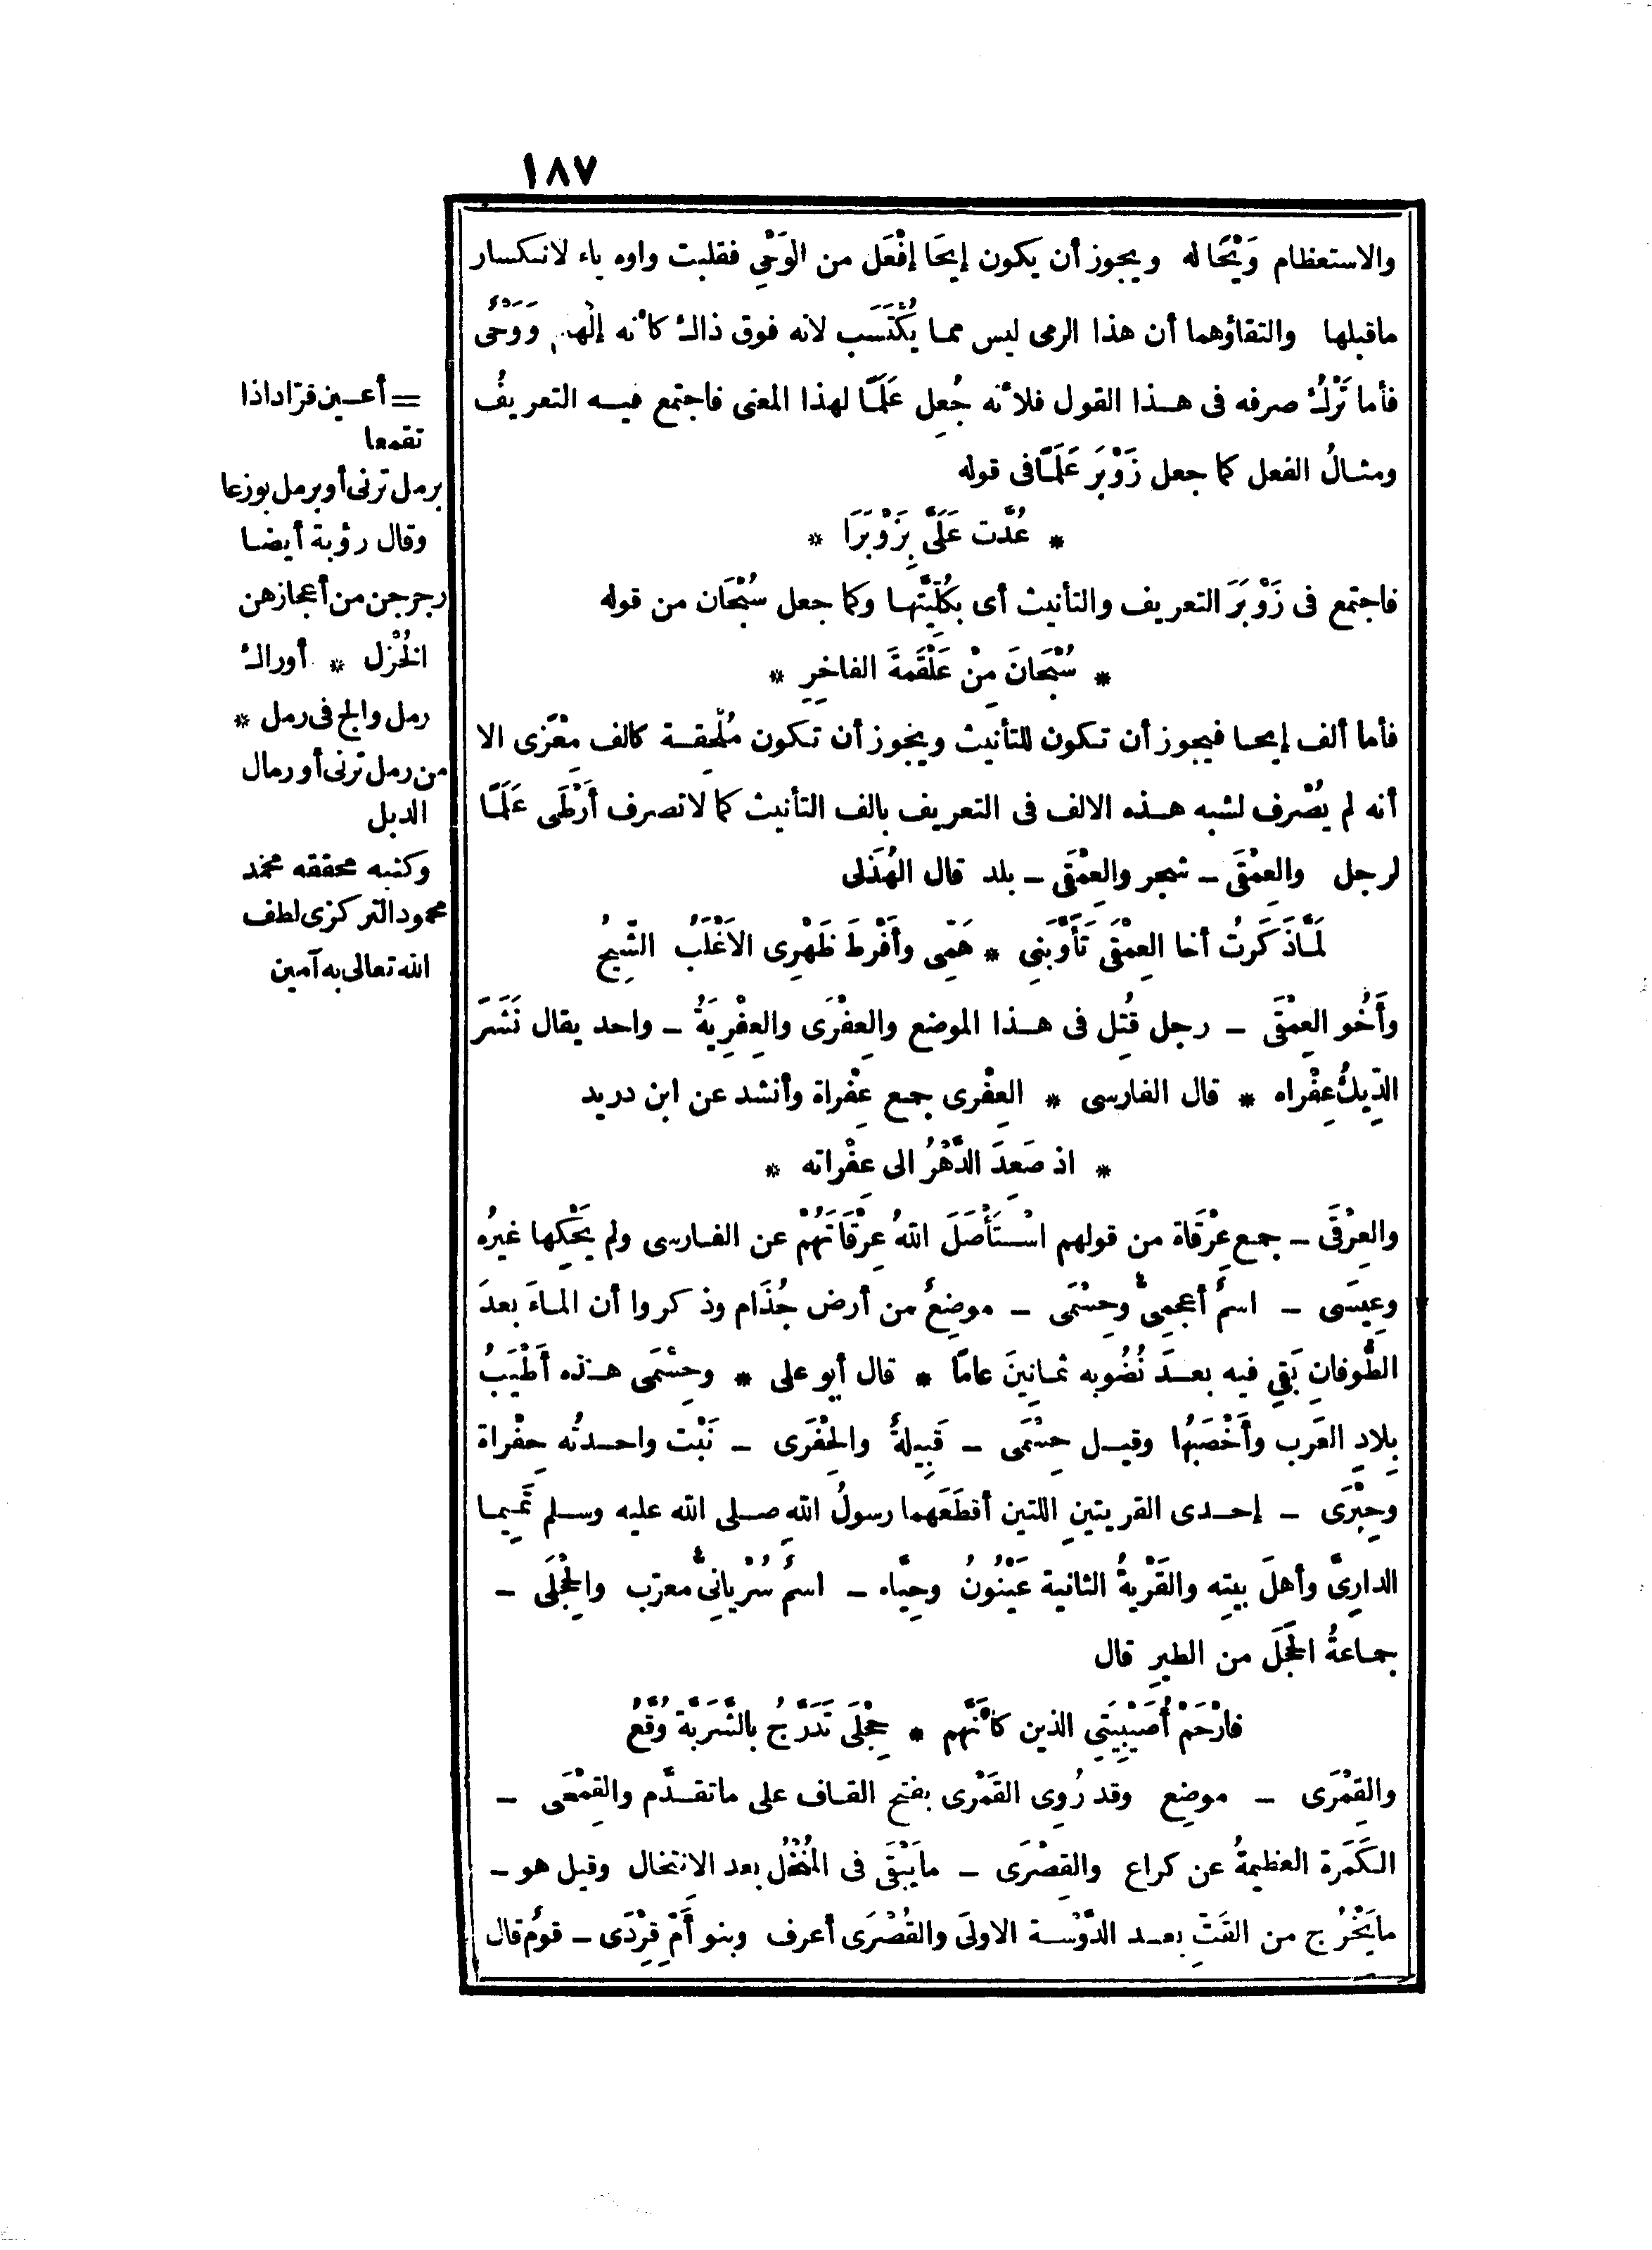 ١٨٧
والاستعظام وَيْحًا له ويجوز أن يكون إيحَا إفْعَل من الوَحْىِ فقلبت واوه ياء لانكسار
ماقبلها والتقاؤهما أن هذا الرمى ليس مما يُكْتَسَب لانه فوق ذلك كأنه إلْهام وَوَحْىٌ
فأما تَرْكُ صرفه فى هذا القول فلأنه جُعِل عَلَمًا لهذا المعنى فاجتمع فيه التعريفُ
ومثالُ الفعل كما جعل زَوْبَرَ عَلَمًا فى قوله
* عُدَّت عَلَىَّ بِزَوْبَرَا *
فاجتمع فى زَوْبَرَ التعريف والتأنيث أى بكُلِّيَّتِها وكما جعل سُبْحَان من قوله
* سُبْحَانَ مِنْ عَلْقَمةَ الفاخِرِ *
فأما ألف إيحا فيجوز أن تكون للتأنيث ويجوز أن تكون مُلْحِقة كالف مِعْزًى الا
أنه لم يُصْرف لشبه هذه الالف فى التعريف بالف التأنيث كما لا تصرف أَرْطَى عَلَمًا
لرجل والعِمْقَى ـ شجر والعِمْقَى ـ بلد قال الهُذَلى
لَمَّا ذَكَرتُ أخا العِمْقَى تَأَوَّبَنِى * هَمِّى وأَفْرطَ ظَهْرِى الأَغْلَبُ الشِّيحُ
وأَخُو العِمْقَى ـ رجل قُتِل فى هذا الموضع والعِفْرَى والعِفْرِيَةُ ـ واحد يقال نَشَرَ
الدِّيكُ عِفْراه * قال الفارسى * العِفْرى جمع عِفْراة وأنشد عن ابن دريد
* اذ صَعِدَ الدَّهْرُ الى عِفْراته *
والعِرْقَى ـ جمع عِرْقَاة من قولهم اسْتَأْصَلَ اللهُ عِرْقَاتَهُمْ عن الفارسى ولم يَحْكِها غيرُه
وعِيسَى ـ اسمٌ أعجمِىٌّ وحِسْمَى ـ موضِعٌ من أرض جُذَام وذكروا أن الماءَ بعدَ
الطُّوفانِ بَقِى فيه بعدَ نُضُوبه ثمانِينَ عامًا * قال أبو على * وحِسْمَى هذه أَطْيَبُ
بِلادِ العَرب وأَخْصَبُها وقيل حِسْمَى ـ قَبِيلةٌ والحِفْرَى ـ نَبْت واحدتُه حِفْراة
وحِبْرَى ـ إحدى القريتينِ اللتين أقطَعَهما رسولُ اللهِ صلى الله عليه وسلم تَمِيما
الدارِىَّ وأهلَ بيتِه والقَرْيةُ الثانية عَيْنُونُ وحِيَّاه ـ اسمٌ سُرْيانِىٌّ معرّب والحِجْلَى ـ
جماعةُ الحَجَل من الطيرِ قال
فارْحَمْ أُصَيْبِيَتِى الذين كأنَّهم * حِجْلَى تَدَرَّجُ بالشَّرَبَّة وُقَّعُ
والقِمْرَى ـ موضِع وقد رُوِى القَمْرى بفتح القاف على ماتقدَّم والقِمْعَى ـ
الكَمَرة العظيمةُ عن كراع والقِصْرَى ـ مايَبْقَى فى المُنْخُل بعد الانتخال وقيل هو ـ
مايَخْرُج من القَتِّ بعد الدَّوْسة الاولَى والقُصْرَى أعرف وبنو أُمّ قِرْدَى ـ قومٌ قال
= أعين فرّاد اذا
تقمعا
برمل ترنى أو برمل بوزعا
وقال رؤبة أيضا
رجرجن من أعجازهن
الخُزْل * أوراك
رمل والج فى رمل *
من رمل ترنى أو رمال
الدبل
وكتبه محققه محمد
محمود التركزى لطف
الله تعالى به آمين